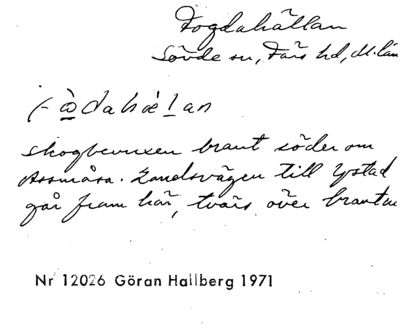 Fogdahällan
Sövde sn, Färs hd, M.län
skogbevuxen brant söder om
Assmåsa. Landsvägen till Ystad
går fram här, tvärs över branten
Nr 12026 Göran Hallberg 1971